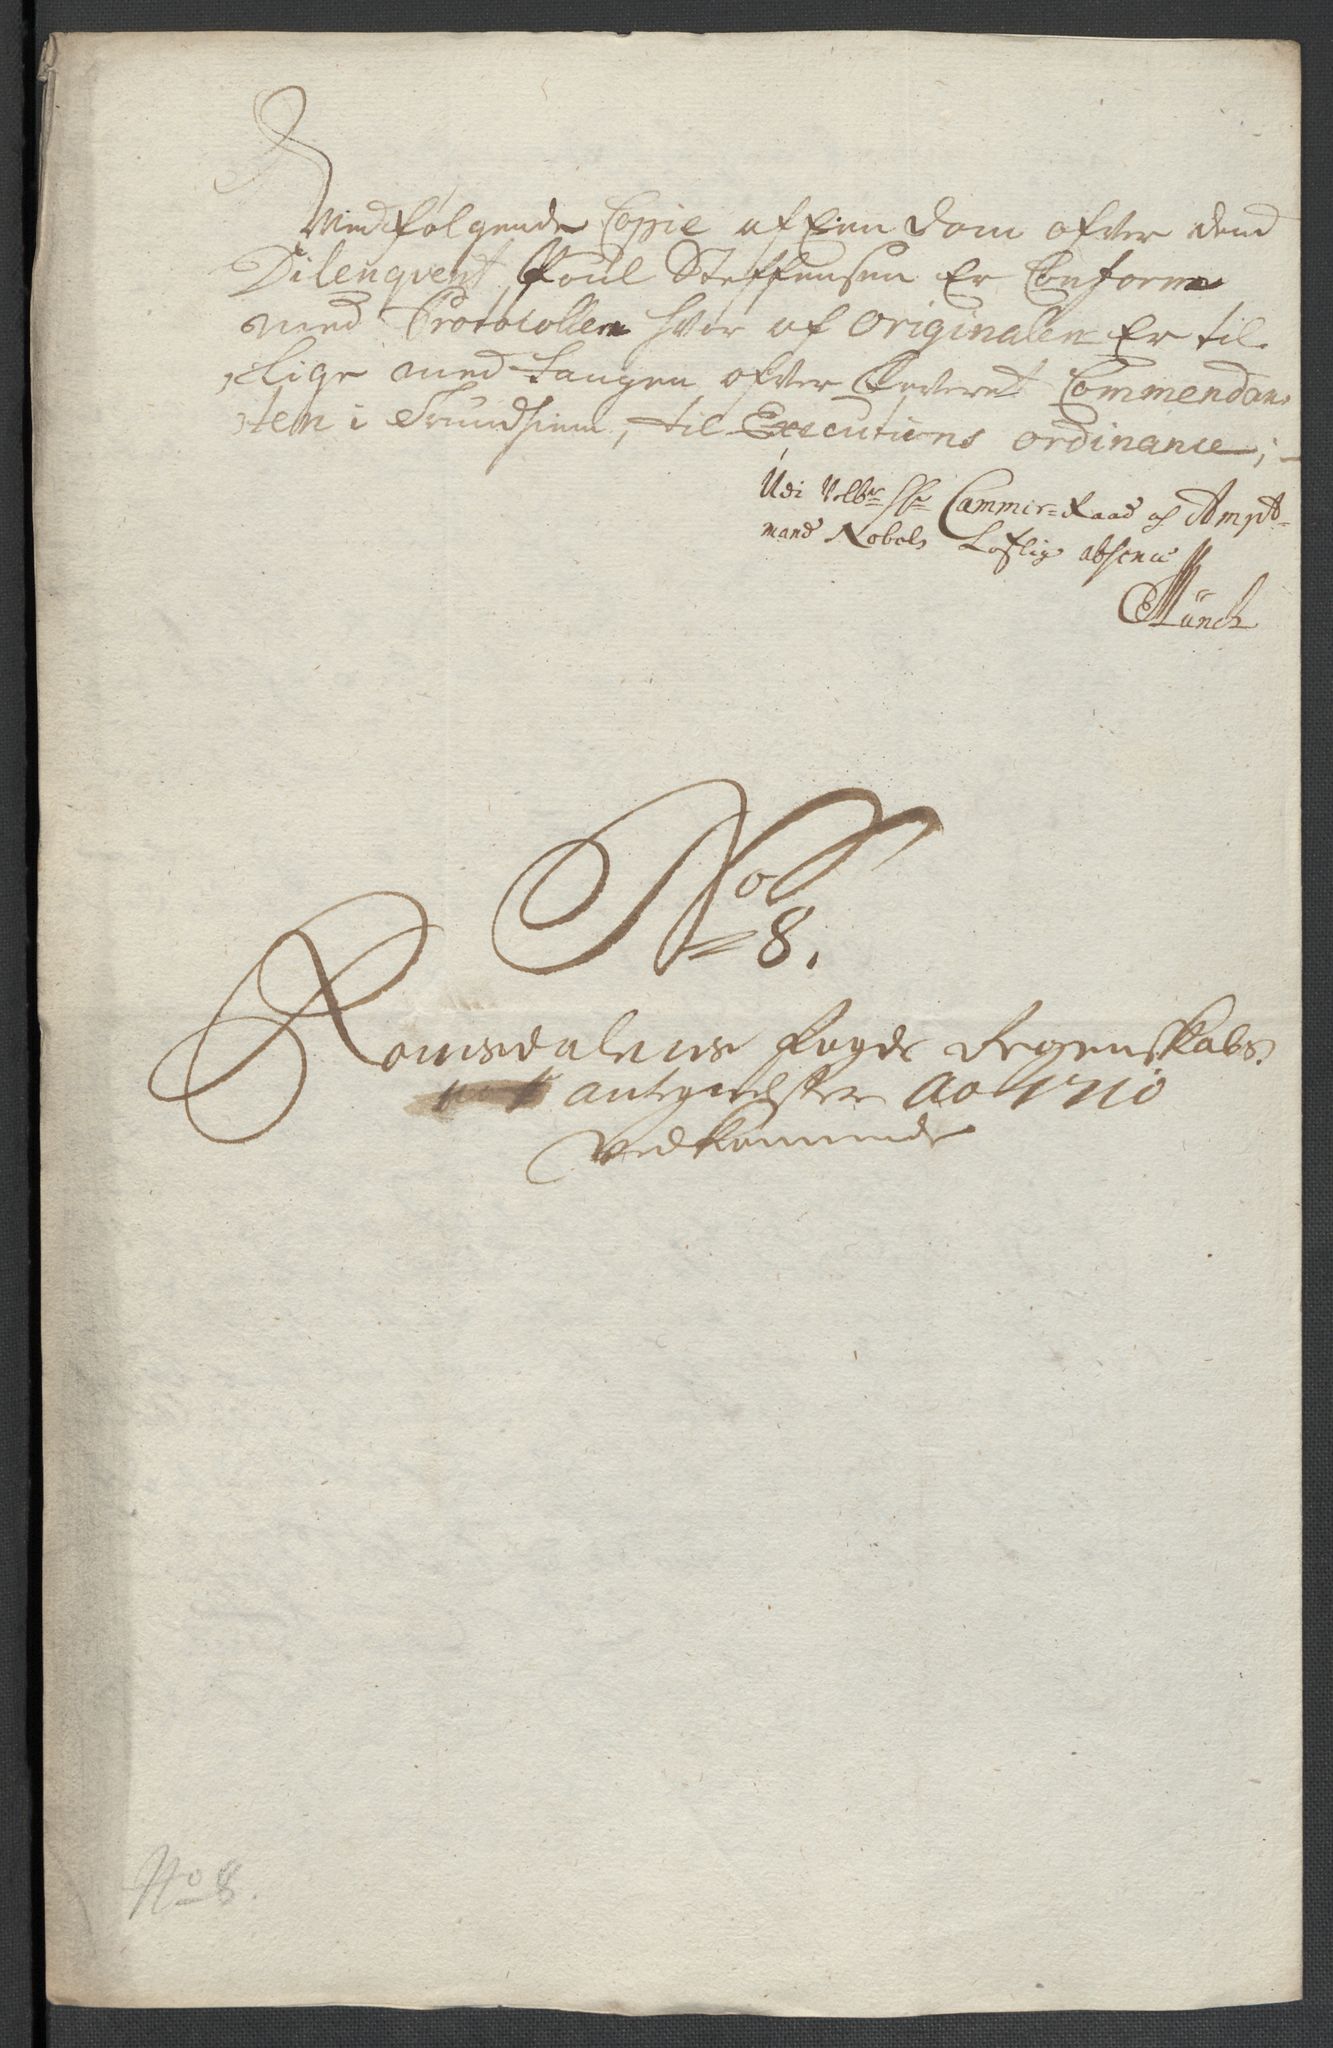 Medfølgende Copie af Een dom ofver dend
Dilenqvent Poul Steffensen Er Conform
med Protocollen hvor af Originalen Er til
lige med fangen ofver leveret Commendan-
ten i Trundhiem, til Executions ordinance;
Udi Velbr. Hr. Cammer-Raad og Ampt-
mand Nobels Loflig absence
Münch
No 8.
Romsdalens fogds Regenskabs
antegnelser Ao 1710
vedkommende
No 8.